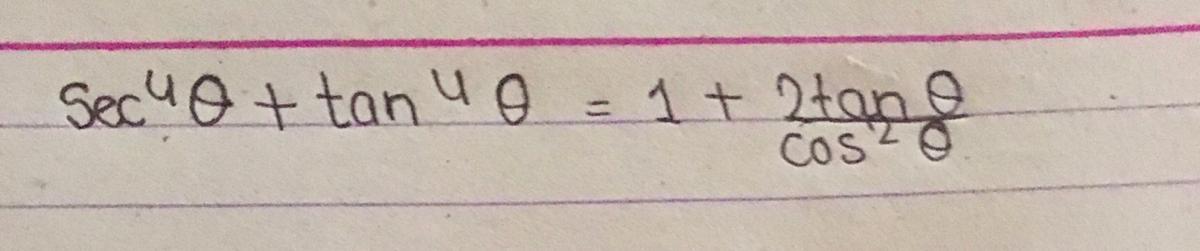 sec⁴θ + tan⁴θ = 1 + 2tanθ/cos²θ